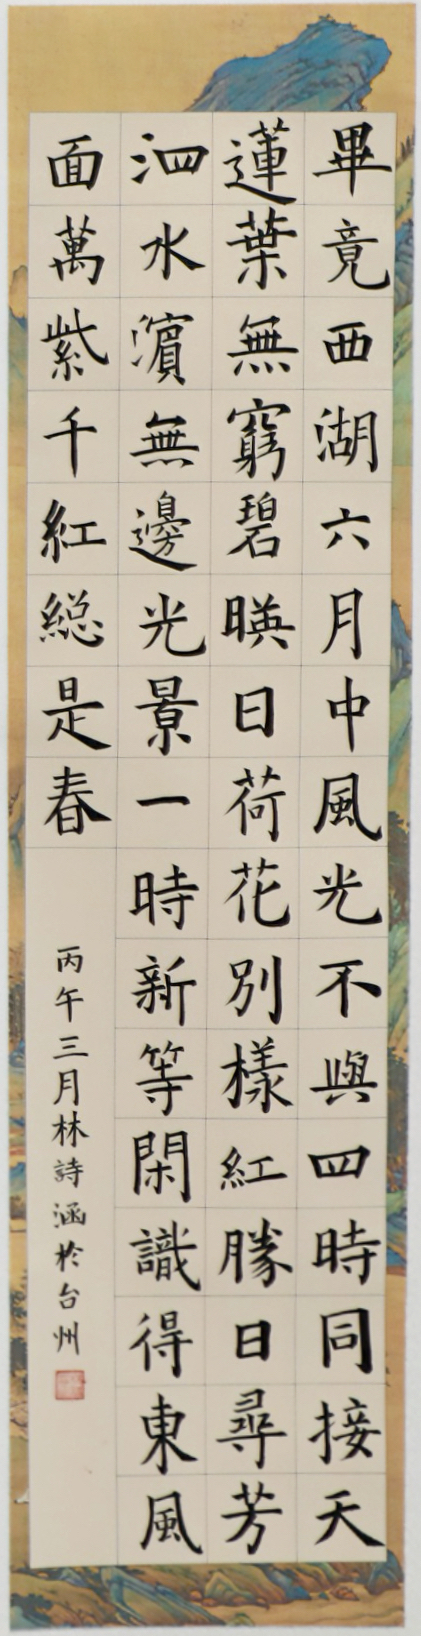 畢竟西湖六月中風光不與四時同接天
蓮葉無窮碧暎日荷花別樣紅勝日尋芳
泗水濵無邊光景一時新等閑識得東風
面萬紫千紅總是春
丙午三月林詩涵於台州